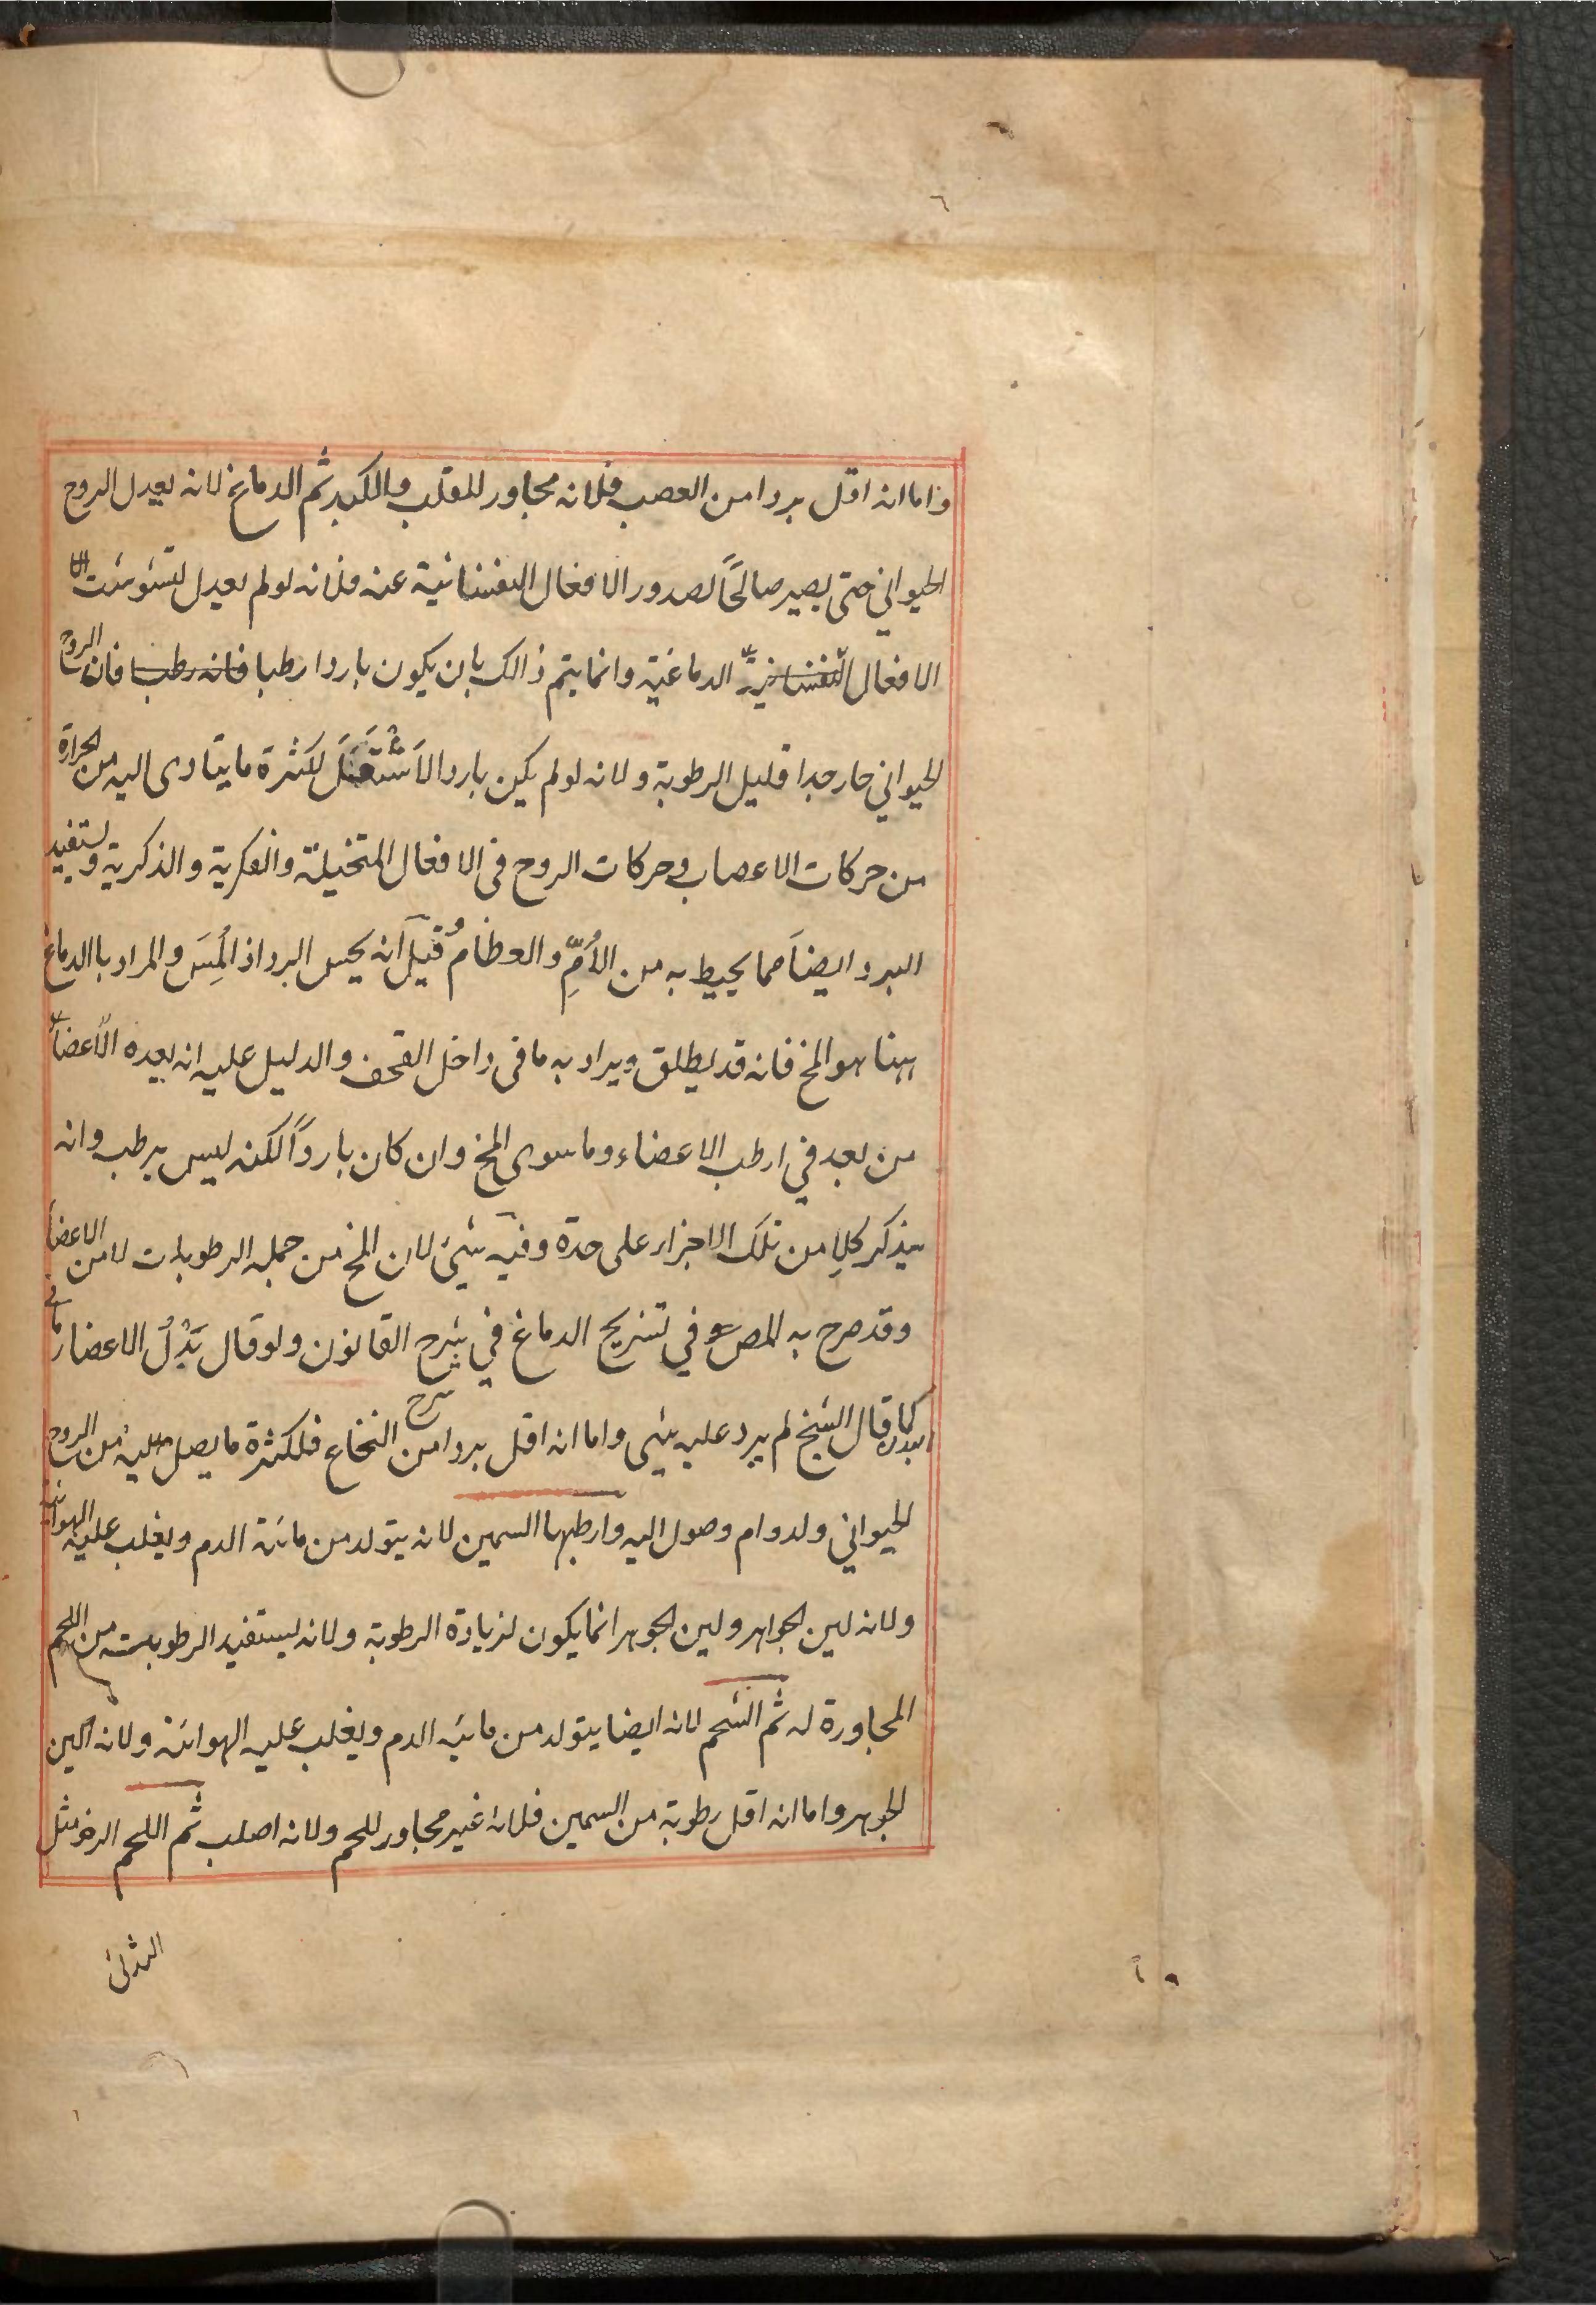 واما انه اقل بردا من العصب فلانه مجاور للقلب والكبد ثم الدماغ لانه يعدل الروح
الحيواني حتى يصير صالحًا لصدور الافعال النفسانية عنه فلانه لو لم يعدل لتشوشت
الافعال النفسانية الدماغية وانما يتم ذالك بان يكون باردا رطبا فانه رطب فان الروح
الحيواني حار جدا قليل الرطوبة ولانه لو لم يكن باردا لاشتعل لكثرة ما يتادى اليه من الحرارة
من حركات الاعصاب وحركات الروح فى الافعال المتخيلة والفكرية والذكرية ويستفيد
البرد ايضا مما يحيط به من الأمِّ والعظام قيل انه يحس البرد اذا لُمِسَ والمراد بالدماغ
ههنا هو المخ فانه قد يطلق ويراد به ما فى داخل القحف والدليل عليه انه يعده الاعضاء
من بعد في ارطب الاعضاء وما سوى المخ وان كان باردًا لكنه ليس برطب وانه
يذكر كلا من تلك الاجزاء على حدة وفيه شيئ لان المخ من جملة الرطوبات لا من الاعضاء
وقد صرح به المص في تشريح الدماغ في شرح القانون ولو قال بَدْلُ الاعضاء ما في
البدن كما قال الشيخ لم يرد عليه شيى واما انه اقل بردا من النخاع فلكثرة ما يصل اليه من الروح
شرح
الحيواني ولدوام وصول اليه وارطبها السمين لانه يتولد من مائية الدم ويغلب عليه الهوائية
ولانه لين الجواهر ولين الجوهر انما يكون لزيادة الرطوبة ولانه يستفيد الرطوبت من اللحم
المجاورة له ثم الشحم لانه ايضا يتولد من مائية الدم ويغلب عليه الهوائية ولانه الين
الجوهر واما انه اقل رطوبة من السمين فلانه غير مجاور للحم ولانه اصلب ثم اللحم الرخو مثل
الثدى